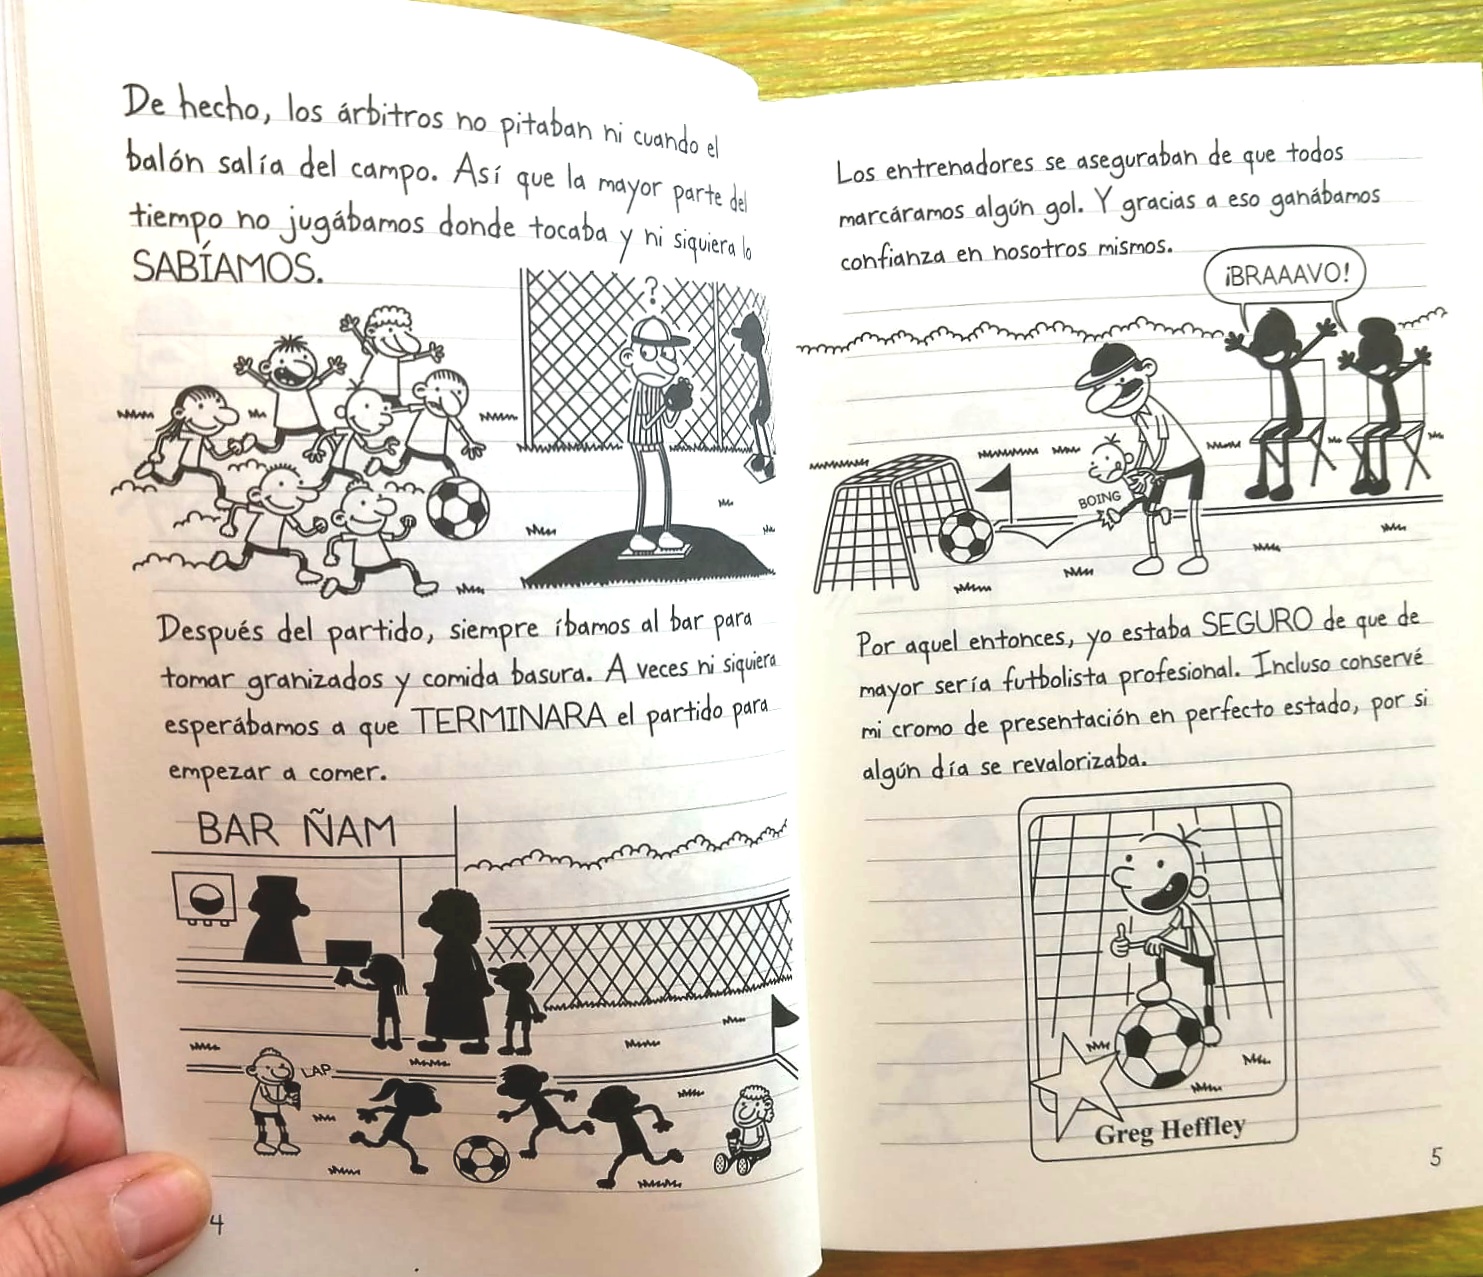 De hecho, los árbitros no pitaban ni cuando el
balón salía del campo. Así que la mayor parte del
tiempo no jugábamos donde tocaba y ni siquiera lo
SABÍAMOS.
?
Después del partido, siempre íbamos al bar para
tomar granizados y comida basura. A veces ni siquiera
esperábamos a que TERMINARA el partido para
empezar a comer.
BAR ÑAM
LAP
4
Los entrenadores se aseguraban de que todos
marcáramos algún gol. Y gracias a eso ganábamos
confianza en nosotros mismos.
¡BRAAAVO!
BOING
Por aquel entonces, yo estaba SEGURO de que de
mayor sería futbolista profesional. Incluso conservé
mi cromo de presentación en perfecto estado, por si
algún día se revalorizaba.
Greg Heffley
5